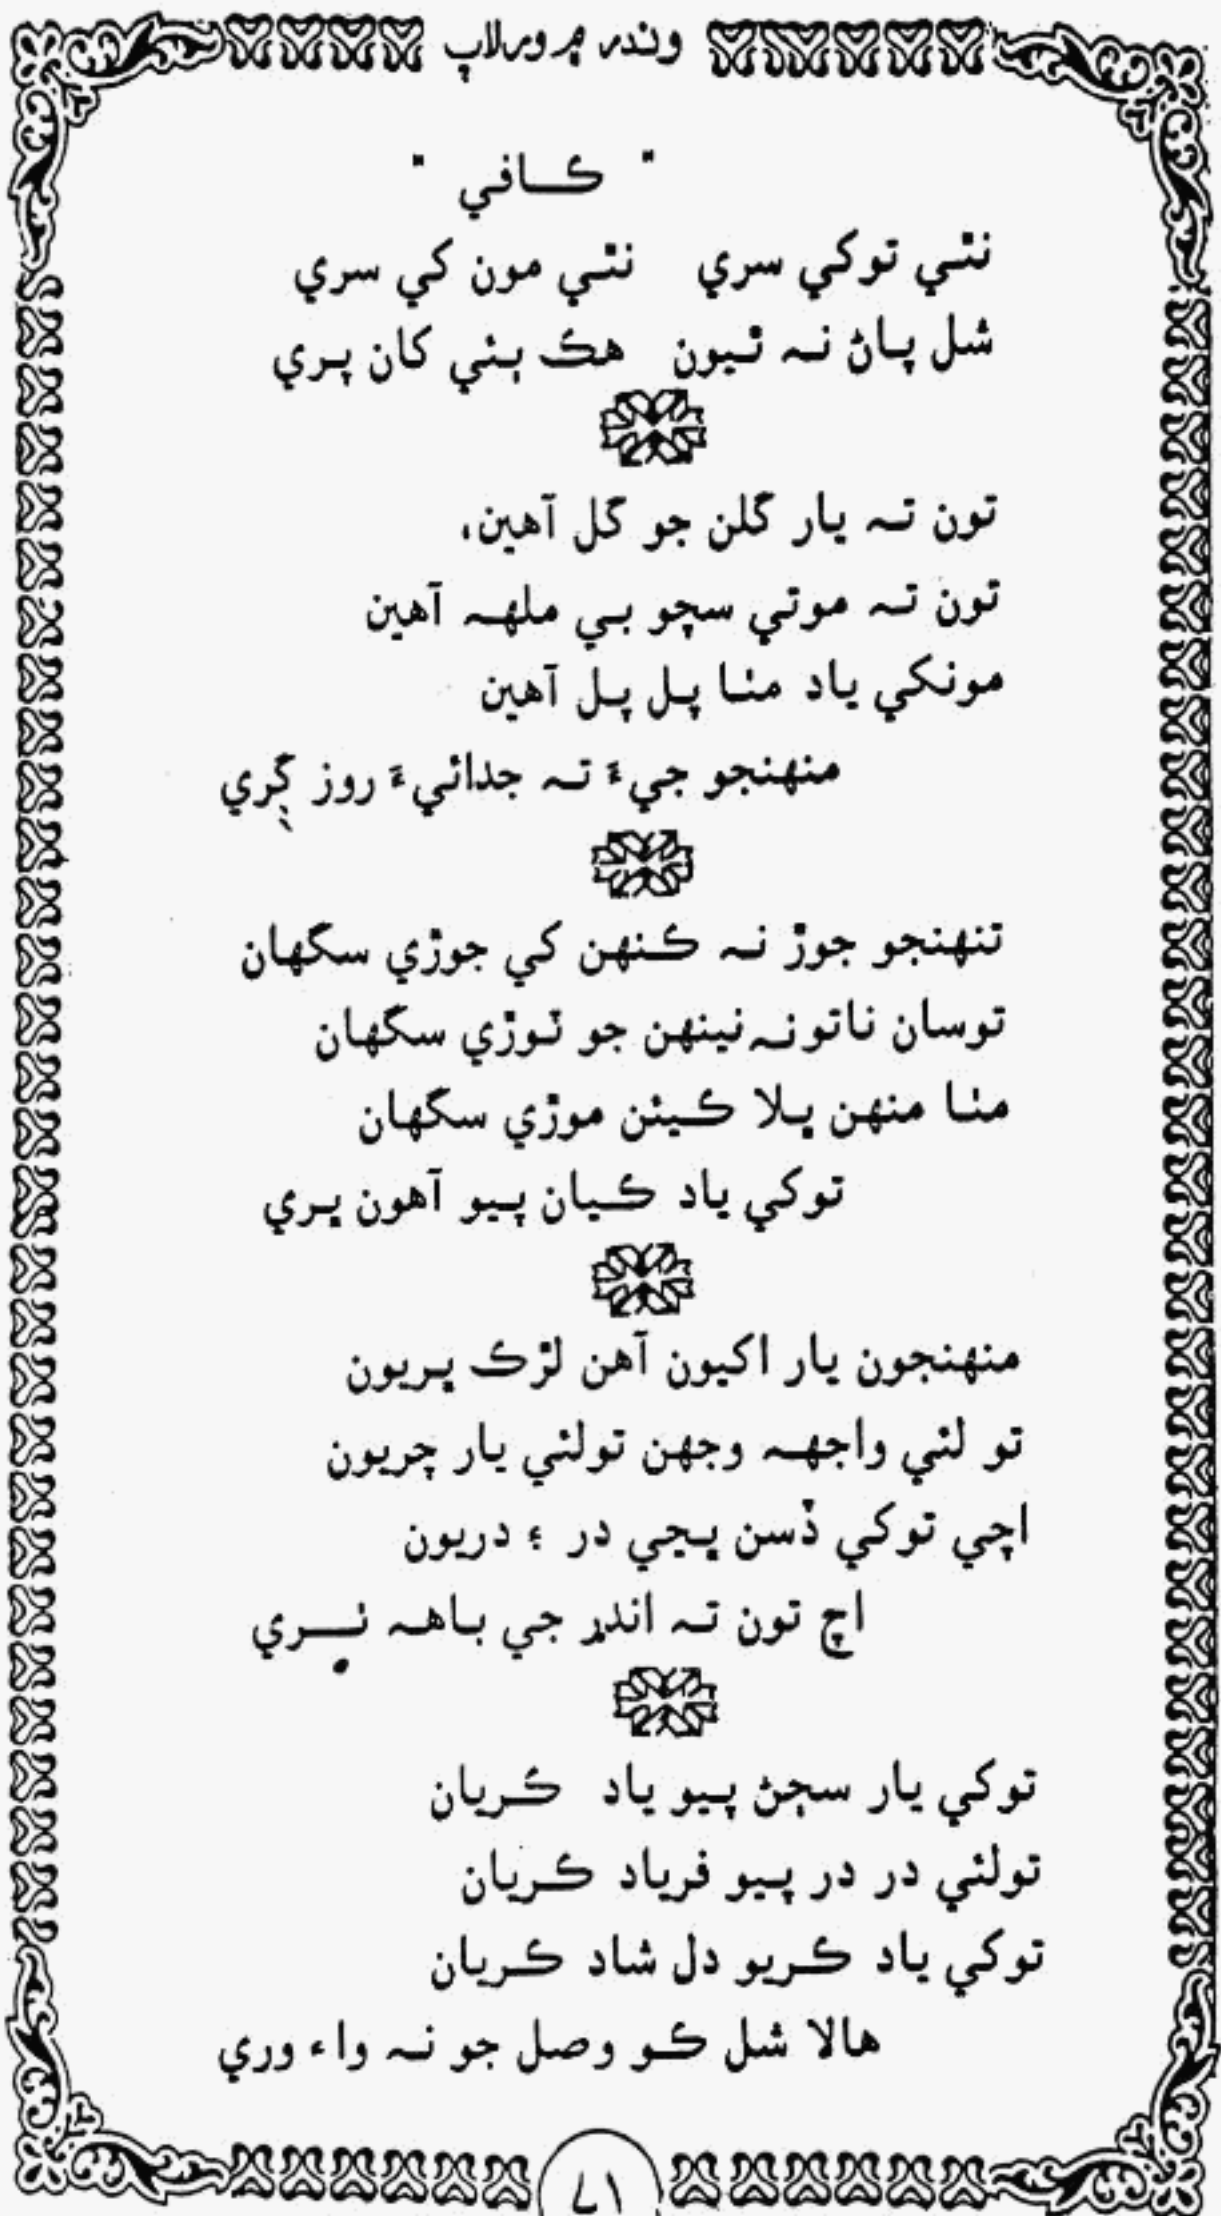 وندر ۾ ورلاپ
" ڪافي "
نٿي توکي سري نٿي مون کي سري
شل پاڻ نہ ٿيون هڪ ٻئي کان پري
تون تہ يار گلن جو گل آهين،
تون تہ موتي سچو بي ملهہ آهين
مونکي ياد مٺا پل پل آهين
منهنجو جيءُ تہ جدائيءَ روز ڳري
تنهنجو جوڙ نہ ڪنهن کي جوڙي سگهان
توسان ناتو نہ نينهن جو ٽوڙي سگهان
مٺا منهن ڀلا ڪيئن موڙي سگهان
توکي ياد ڪيان پيو آهون ڀري
منهنجون يار اکيون آهن لڙڪ ڀريون
تو لئي واجهہ وجهن تولئي يار چريون
اچي توکي ڏسن ڀڃي در ۽ دريون
اچ تون تہ اندر جي باهہ ٺري
توکي يار سڄڻ پيو ياد ڪريان
تولئي در در پيو فرياد ڪريان
توکي ياد ڪريو دل شاد ڪريان
هالا شل ڪو وصل جو نہ واءُ وري
٧١